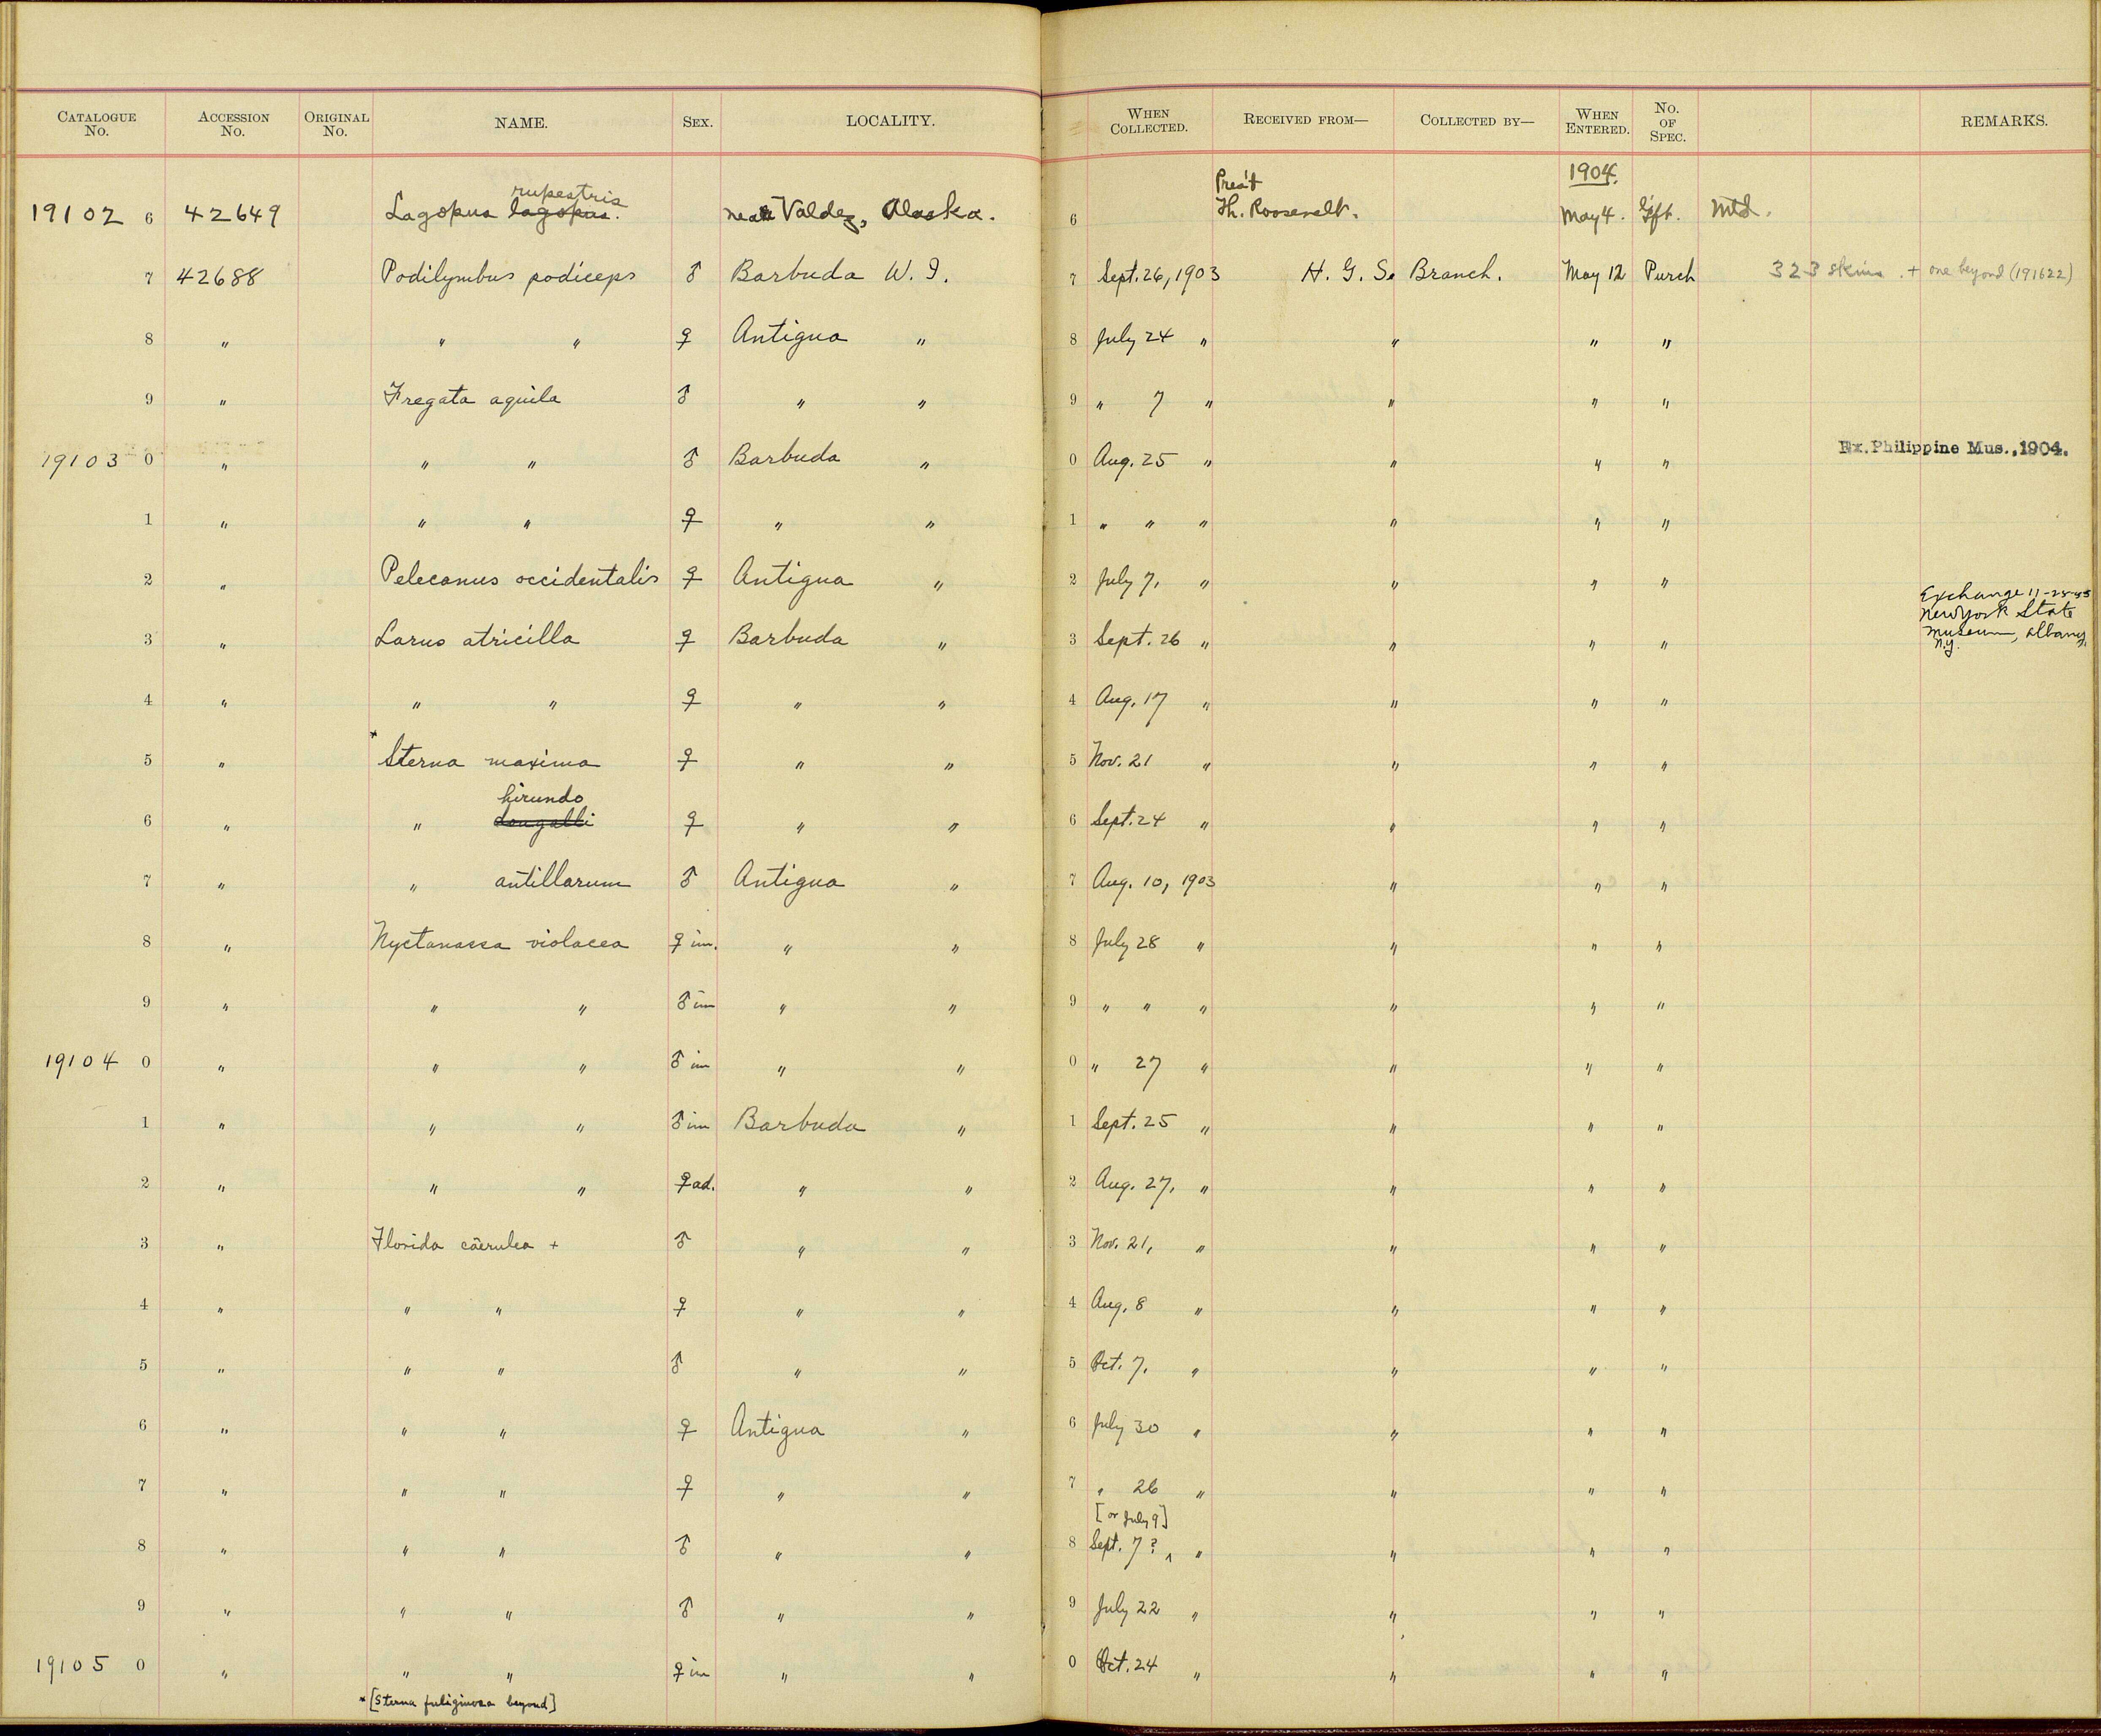 CATALOGUE No. ACCESSION No. ORIGINAL No. NAME. SEX. LOCALITY. WHEN COLLECTED. RECEIVED FROM— COLLECTED BY— WHEN ENTERED. No. OF SPEC. REMARKS.
1904.
rupestris Pres't
19102 6 42649 Lagopus lagopus. near Valdez, Alaska. 6 Th. Roosevelt. May 4. Gift. Mtd.
7 42688 Podilymbus podiceps ♂ Barbuda W. I. 7 Sept. 26, 1903 H. G. S. Branch. May 12 Purch 323 skins. + one beyond (191622)
8 " " " ♀ Antigua " 8 July 24 " " " "
9 " Fregata aquila ♂ " " 9 " 7 " " " "
19103 0 " " " ♂ Barbuda " 0 Aug. 25 " " " " Ex. Philippine Mus., 1904.
1 " " " ♀ " " 1 " " " " " "
2 " Pelecanus occidentalis ♀ Antigua " 2 July 7, " " " "
Exchange
New York State
Museum, Albany,
N.Y.
3 " Larus atricilla ♀ Barbuda " 3 Sept. 26 " " " "
4 " " " ♀ " " 4 Aug. 17 " " " "
5 " * Sterna maxima ♀ " " 5 Nov. 21 " " " "
hirundo
6 " " dougalli ♀ " " 6 Sept. 24 " " " "
7 " " antillarum ♂ Antigua " 7 Aug. 10, 1903 " " "
8 " Nyctanassa violacea ♀ im. " " 8 July 28 " " " "
9 " " " ♂ im " " 9 " " " " " "
19104 0 " " " ♂ im " " 0 " 27 " " " "
1 " " " ♂ im Barbuda " 1 Sept. 25 " " " "
2 " " " ♀ ad. " " 2 Aug. 27, " " " "
3 " Florida cærulea + ♂ " " 3 Nov. 21, " " " "
4 " " " ♀ " " 4 Aug. 8 " " " "
5 " " " ♂ " " 5 Oct. 7, " " " "
6 " " " ♀ Antigua " 6 July 30 " " " "
7 " " " ♀ " " 7 " 26 " " " "
[or July 9]
8 " " " ♂ " " 8 Sept. 7? ^ " " " "
9 " " " ♂ " " 9 July 22 " " " "
19105 0 " " " ♀ im " " 0 Oct. 24 " " " "
* [Sterna fuliginosa beyond]